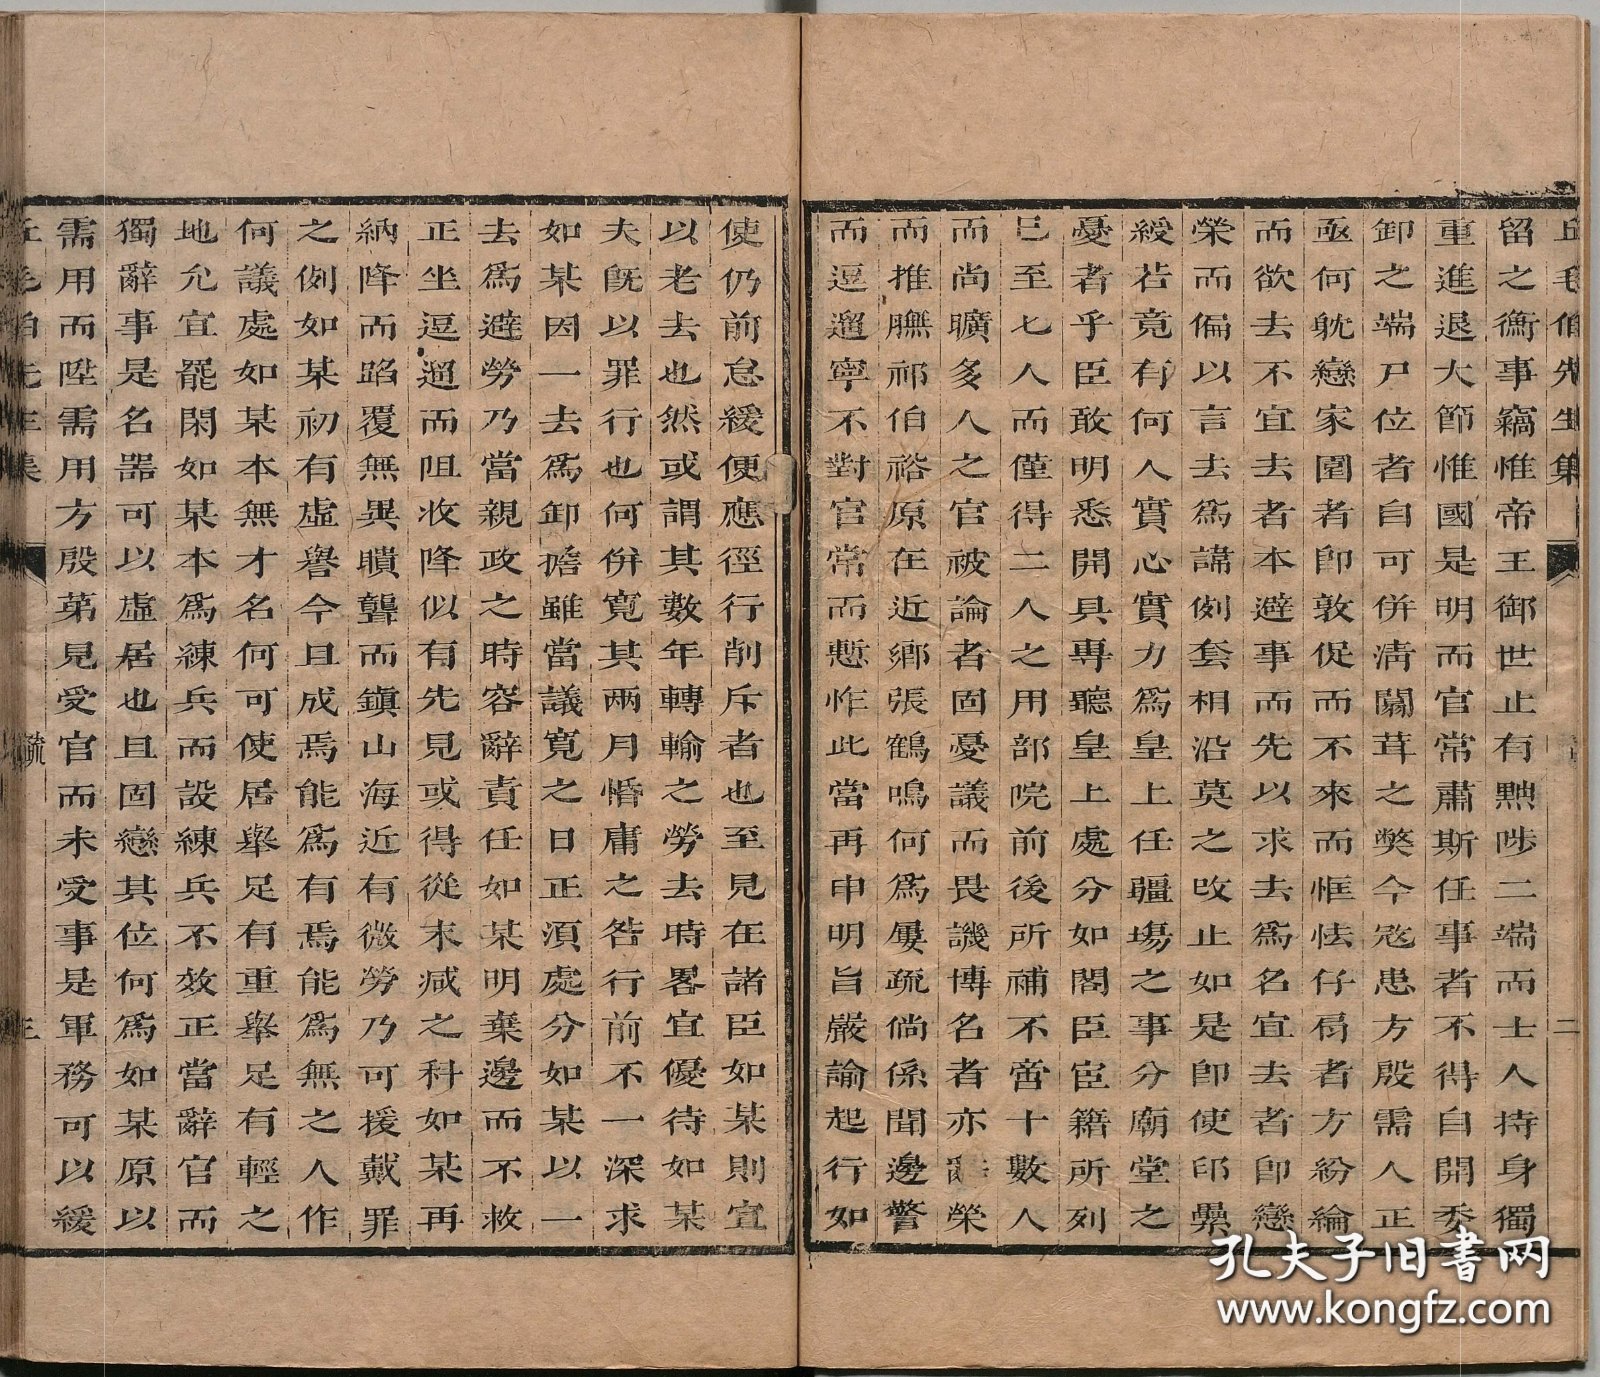 丘毛伯先生集 二
留之衡事竊惟帝王御世止有黜陟二端而士人持身獨
重進退大節惟國是明而官常肅斯任事者不得自開委
卸之端尸位者自可併清闒茸之獘今冦患方殷需人正
亟何躭戀家園者卽敦促而不來而恇怯仔肩者方紛綸
而欲去不宜去者本避事而先以求去為名宜去者卽戀
榮而偏以言去爲講例套相沿莫之攺止如是卽使印纍
綬若竟有何人實心實力爲皇上任疆塲之事分廟堂之
憂者乎臣敢明悉開具專聽皇上處分如閣臣宦籍所列
巳至七人而僅得二人之用部院前後所補不啻十數人
而尚曠多人之官被論者固憂議而畏譏博名者亦榮
而推臕祁伯裕原在近鄉張鶴鳴何爲屢疏倘係聞邊警
而逗遛寧不對官常而慙怍此當再申明旨嚴諭起行如
使仍前怠緩便應徑行削斥者也至見在諸臣如某則宜
以老去也然或謂其數年轉輸之勞去時畧宜優待如某
夫旣以罪行也何併寬其兩月惛庸之咎行前不一深求
如某因一去爲卸擔雖當議寬之日正須處分如某以一
去爲避勞乃當親政之時容辭責任如某明棄邊而不救
正坐逗遛而阻收降似有先見或得從末減之科如某再
納降而蹈覆無異聵聾而鎮山海近有微勞乃可援戴罪
之例如某初有虛譽今且成焉能爲有焉能爲無之人作
何議處如某本無才名何可使居舉足有重舉足有輕之
地允宜罷閑如某本爲練兵而設練兵不效正當辭官而
獨辭事是名器可以虛居也且固戀其位何爲如某原以
需用而陞需用方殷苐見受官而未受事是軍務可以緩
丘毛伯先生集 疏 三
孔夫子旧书网
www.kongfz.com